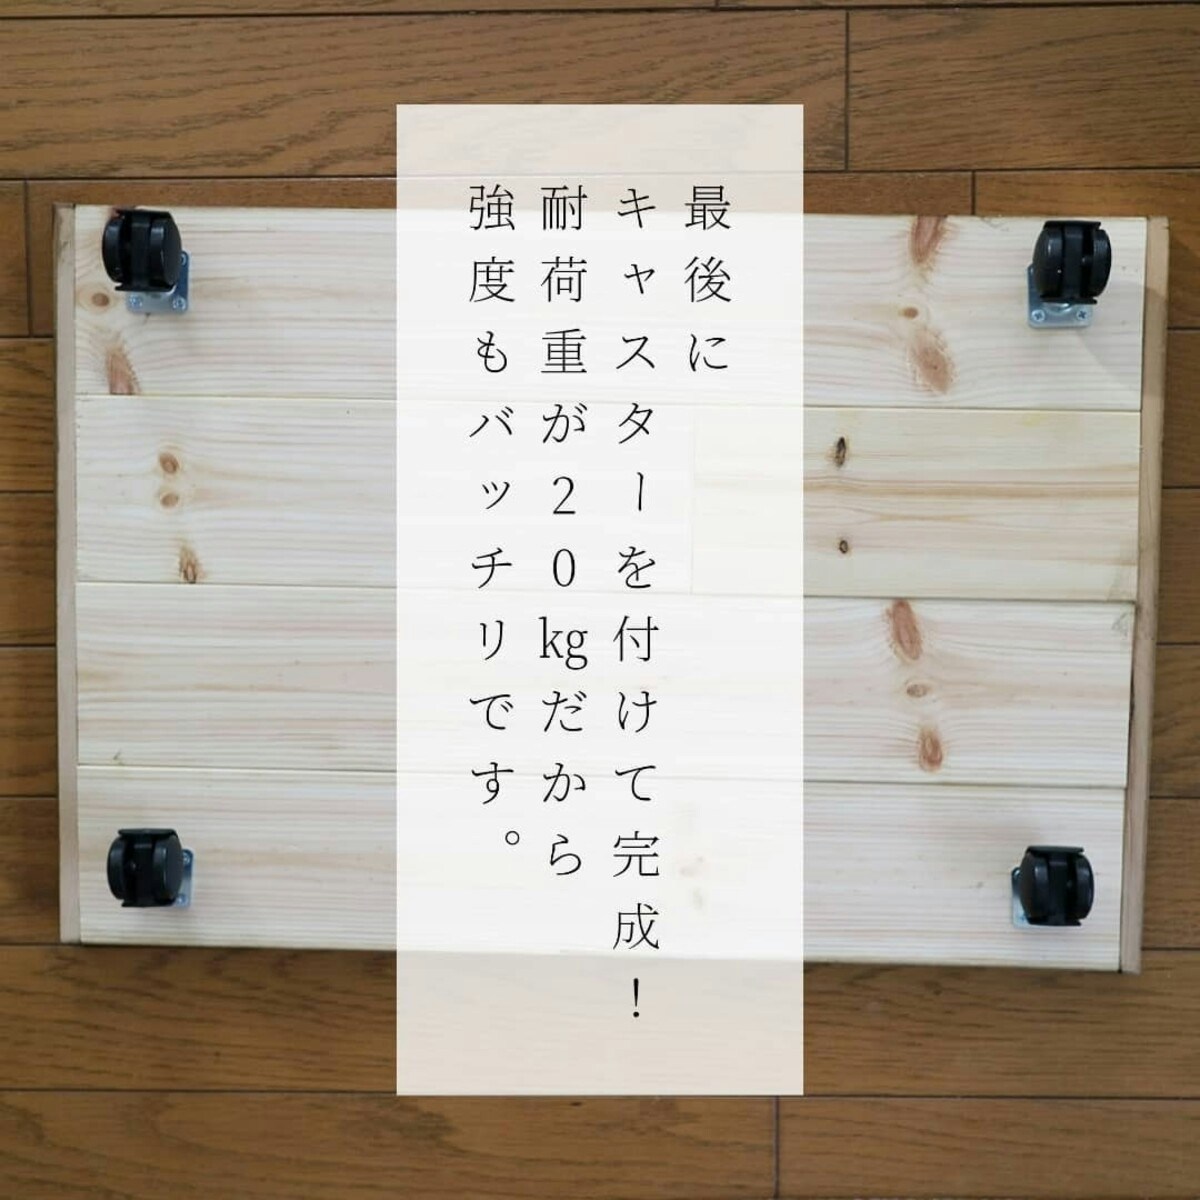 最後に
キャスターを付けて完成！
耐荷重が２０kgだから
強度もバッチリです。